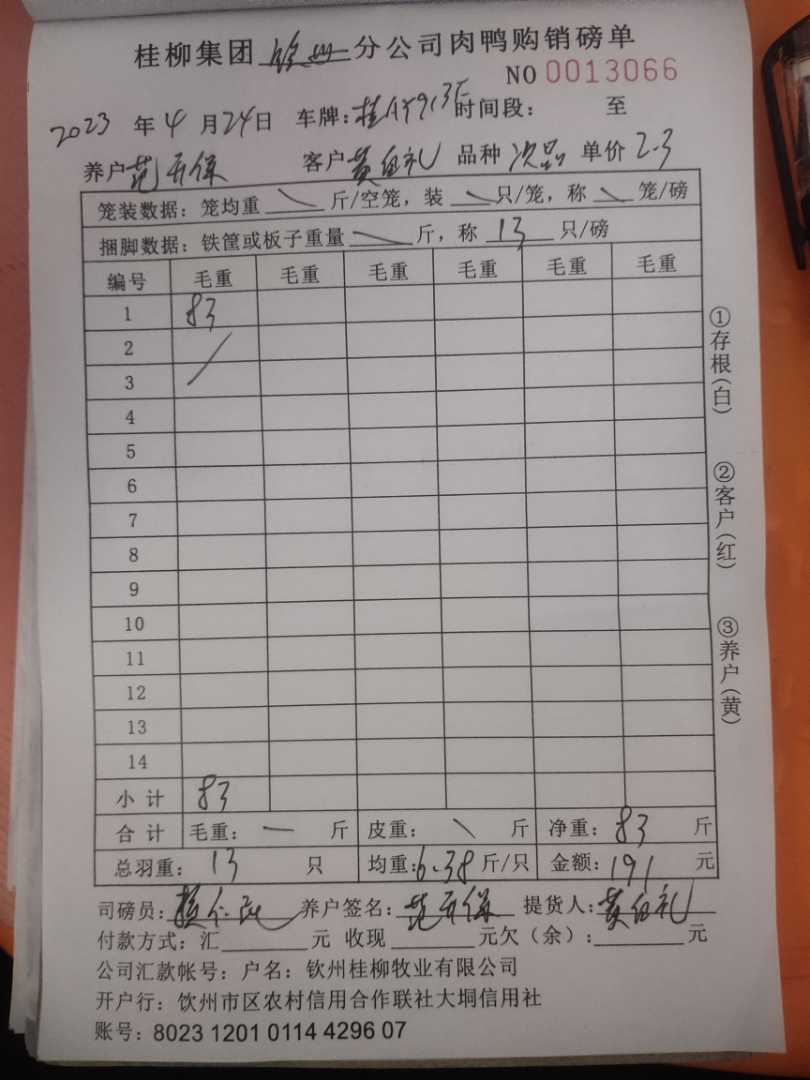 桂柳集团 钦州 分公司肉鸭购销磅单
NO 0013066
2023 年 4 月 24 日 车牌: 时间段: 至
养户 客户 黄 礼 品种 次品 单价 2.3
笼装数据: 笼均重 \ 斤/空笼, 装 \ 只/笼, 称 \ 笼/磅
捆脚数据: 铁筐或板子重量 \ 斤, 称 13 只/磅
编号 毛重 毛重 毛重 毛重 毛重 毛重
1 83
2
3
4
5
6
7
8
9
10
11
12
13
14
小计 83
合计 毛重: — 斤 皮重: \ 斤 净重: 83 斤
总羽重: 13 只 均重: 6.38 斤/只 金额: 191 元
司磅员: 养户签名: 提货人: 黄 礼
付款方式: 汇 元 收现 元欠(余): 元
公司汇款帐号: 户名: 钦州桂柳牧业有限公司
开户行: 饮州市区农村信用合作联社大垌信用社
账号: 8023 1201 0114 4296 07
①存根(白)
②客户(红)
③养户(黄)